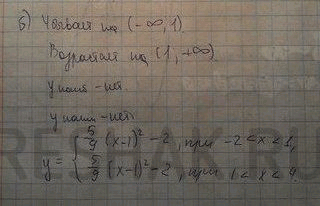 б) Убывает на (-∞, 1).
Возрастает на (1, +∞)
y наиб - нет.
y наим - нет.
y = { 5/9 (x-1)² - 2, при -2 < x < 1,
5/9 (x-1)² - 2, при 1 < x < 4.